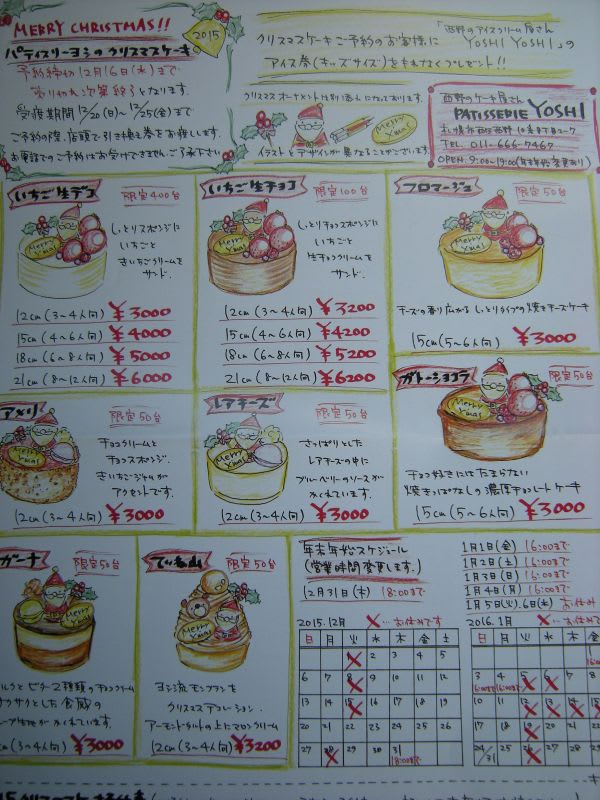 MERRY CHRISTMAS!!
2015
パティスリーヨシのクリスマスケーキ
予約締切12月16日(水)まで
売りきれ次第終了となります。
受渡期間12/20(日)〜12/25(金)まで
ご予約の際、店頭で引き換え券をお渡しします。
お電話でのご予約はお受けできません。ご了承下さい
クリスマスケーキご予約のお客様に
「西野のアイスクリーム屋さん
YOSHI YOSHI」の
アイス券(キッズサイズ)をもれなくプレゼント!!
クリスマスオーナメントは別添えになっております。
Merry Xmas!
イラストとデザインが異なることがございます。
西野のケーキ屋さん
PATISSERIE YOSHI
TEL. 011-666-7467
OPEN. 9:00〜19:00(年末年始変更あり)
いちご生デコ
限定400台
Merry Xmas!
しっとりスポンジに
いちごと
きいちごクリームを
サンド。
12cm(3〜4人向) ¥3000
15cm(4〜6人向) ¥4000
18cm(6〜8人向) ¥5000
21cm(8〜12人向) ¥6000
いちご生チョコ
限定100台
Merry Xmas!
しっとりチョコスポンジに
いちごと
生チョコクリームを
サンド.
12cm(3〜4人向) ¥3200
15cm(4〜6人向) ¥4200
18cm(6〜8人向) ¥5200
21cm(8〜12人向) ¥6200
フロマージュ
限定50台
Merry Xmas!
チーズの香り広がるしっとりタイプの焼きチーズケーキ
15cm(5〜6人向) ¥3000
アメリ
限定50台
Merry Xmas!
チョコクリームと
チョコスポンジ.
きいちごジャムが
アクセントです.
12cm(3〜4人向) ¥3000
レアチーズ
限定50台
Merry Xmas!
さっぱりとした
レアチーズの中に
ブルーベリーのソースが
かくれています.
12cm(3〜4人向) ¥3000
ガトーショコラ
限定50台
Merry Xmas!
チョコ好きにはたまらない
焼きっぱなしの濃厚チョコレートケーキ
15cm(5〜6人向) ¥3000
ガーナ
限定50台
Merry Xmas!
ミルクとビター2種類のチョコクリーム
サクサクとした食感の
生地がかくれています.
(3〜4人向) ¥3000
ていね山
限定50台
Merry Xmas!
ヨシ流モンブランを
クリスマスデコレーション.
アーモンドタルトの上にマロンクリーム
12cm(3〜4人向) ¥3200
年末年始スケジュール
(営業時間変更します.)
12月31日(木) 18:00まで
1月1日(金) 16:00まで
1月2日(土) 16:00まで
1月3日(日) 16:00まで
1月4日(月) 16:00まで
1月5日(火).6日(水) お休み
2015.12月 ×…お休みです
日 月 火 水 木 金 土
1 2 3 4 5
6 7 8 9 10 11 12
13 14 15 16 17 18 19
20 21 22 23 24 25 26
27 28 29 30 31
18:00まで
2016.1月 ×…お休み
日 月 火 水 木 金
1
3 4 5 6 7 8
16:00まで 16:00まで
10 11 12 13 14 15
17 18 19 20 21 22
24/31 25 26 27 28 29